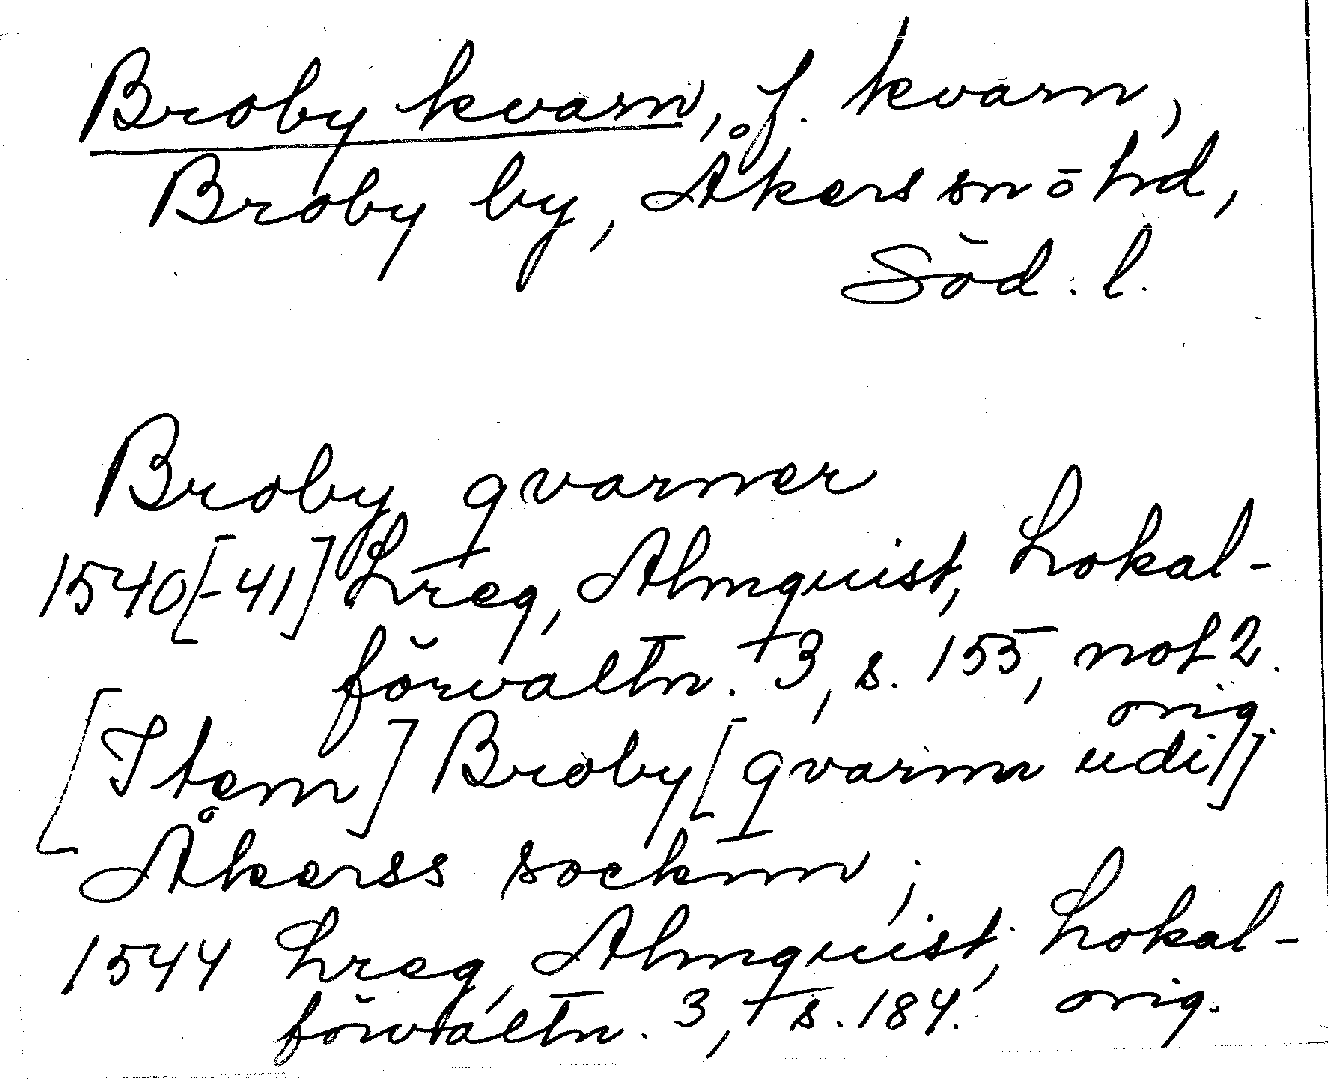 Broby kvarn, f. kvarn,
Broby by, Åkers sn o hd,
Söd. l.
Broby qvarner
1540[-41] Lreg, Almquist, Lokal-
förvaltn. 3, s. 155, not 2.
orig.
[Item] Broby [qvarnn udi]
Åkerss socknn;
1544 Lreg, Almquist, Lokal-
förvaltn. 3, s. 184. orig.